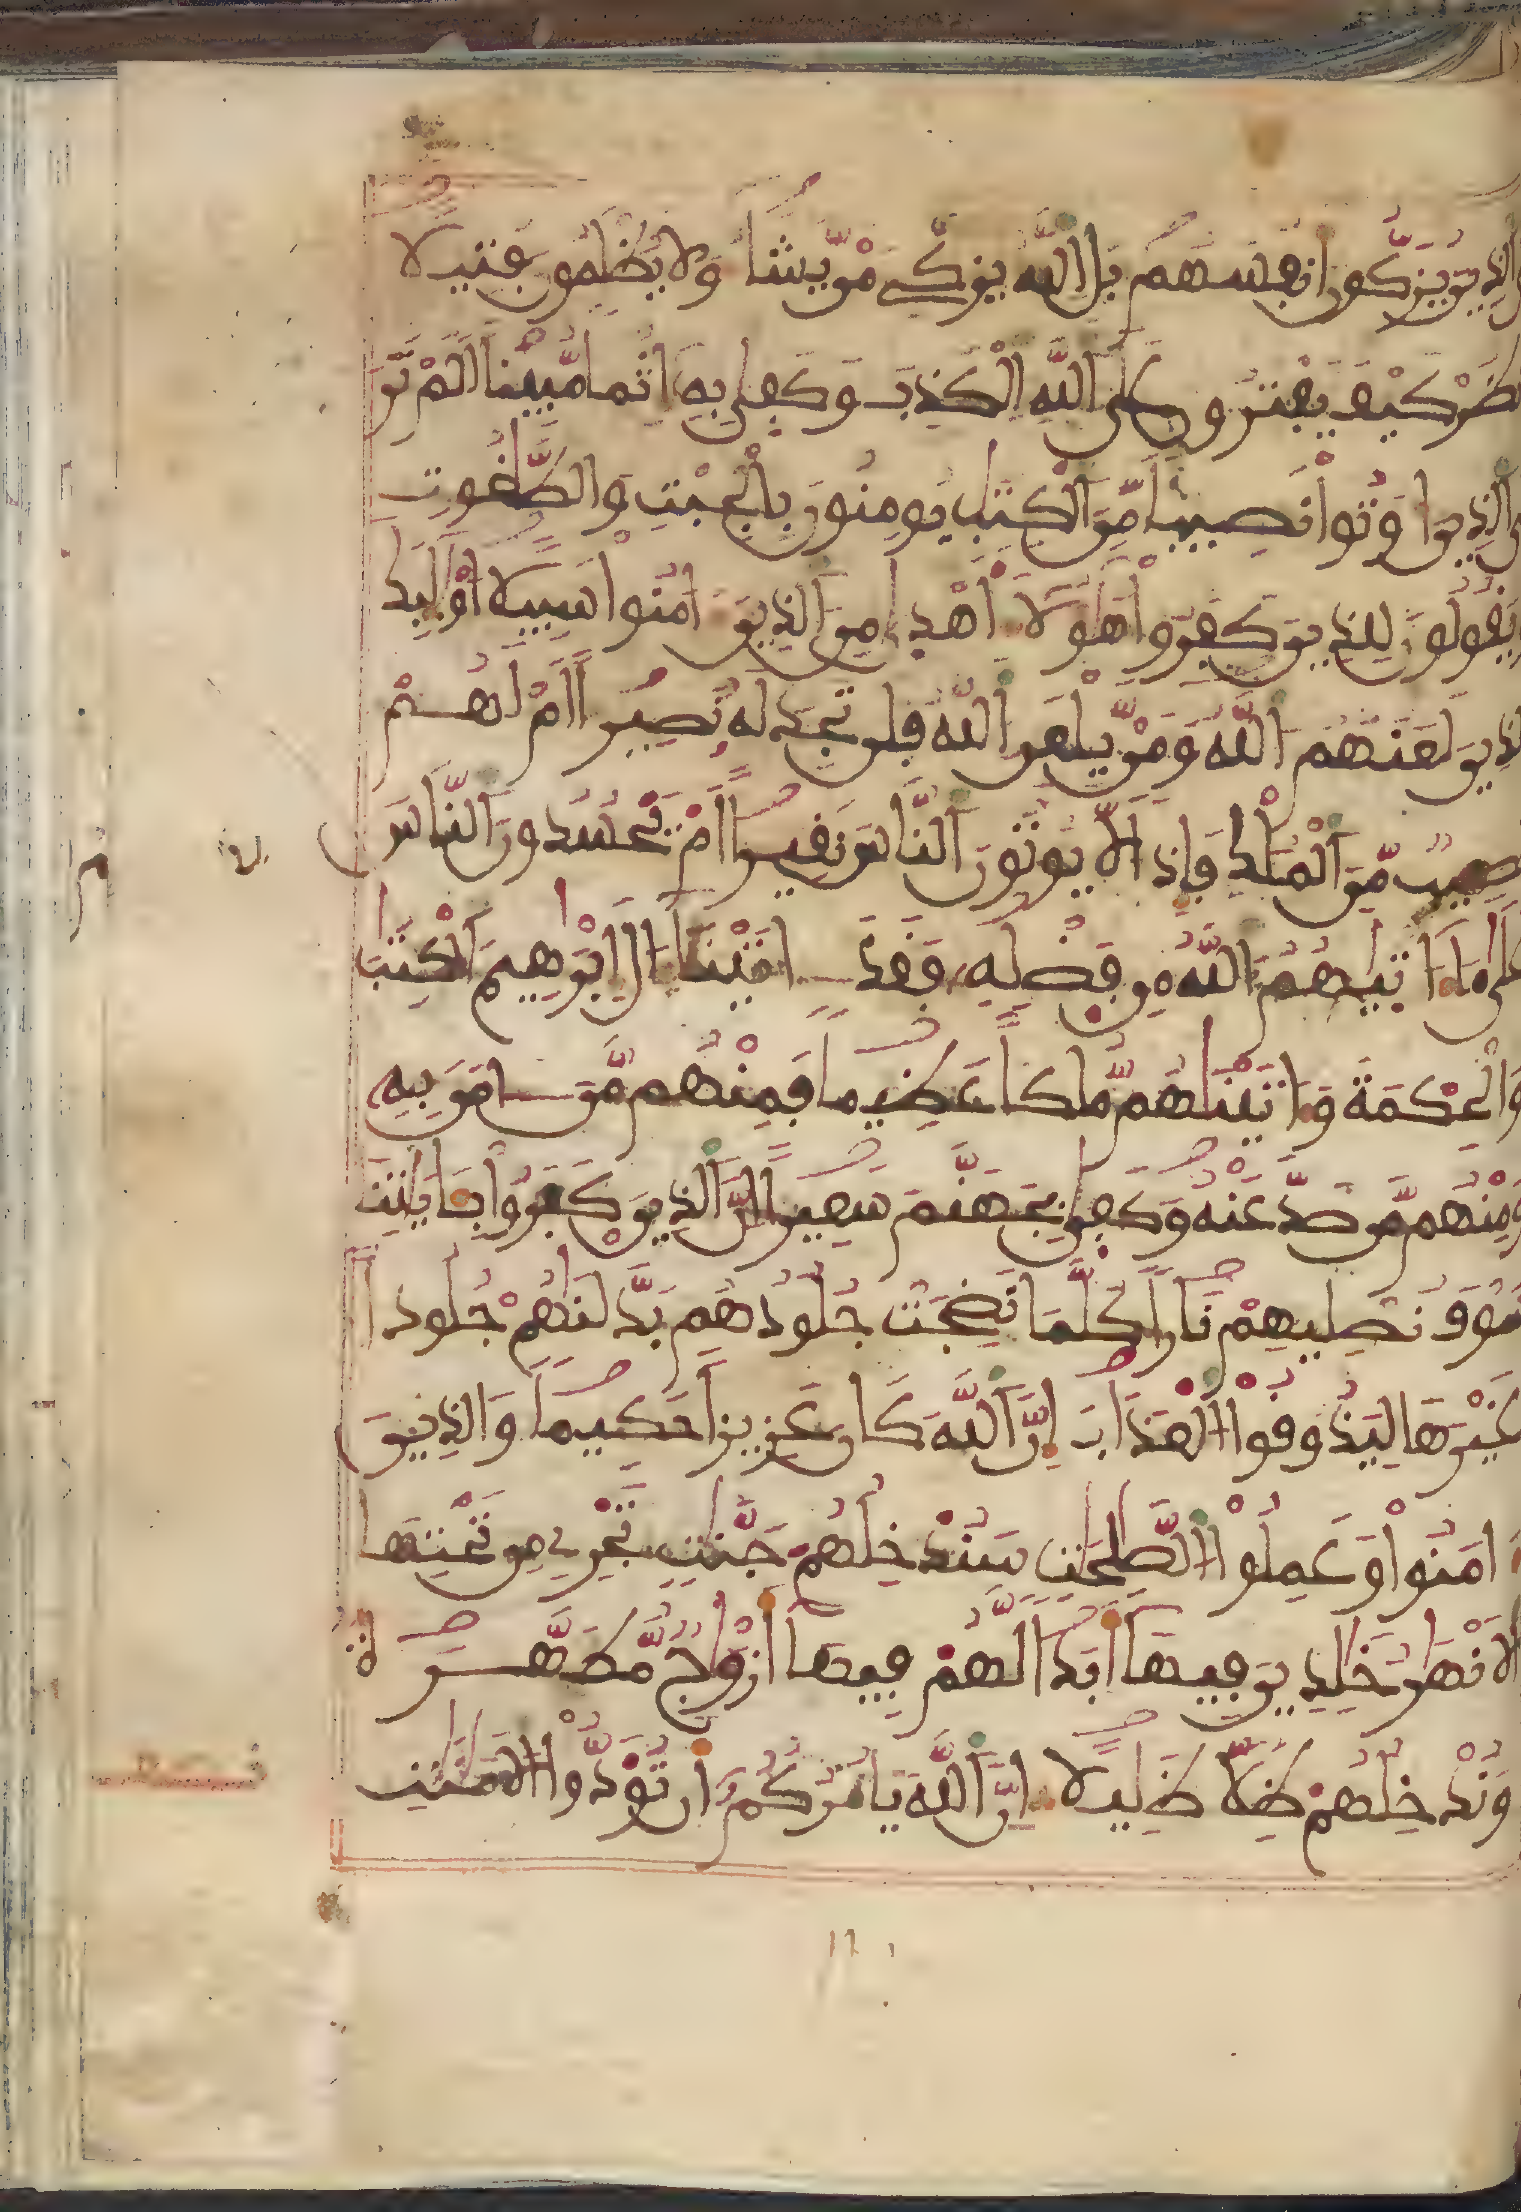 الذين يزكون أنفسهم بل الله يزكي من يشا ولا يظلمون فتيلا
نظر كيف يفترون على الله الكذب وكفى به إثما مبينا ألم تر
الى الذين أوتوا نصيبا من الكتب يومنون بالجبت والطغوت
ويقولون للذين كفروا هؤلا أهدى من الذين امنوا سبيلا أوليك
الذين لعنهم الله ومن يلعن الله فلن تجد له نصيرا أم لهم
نصيب من الملك فإذا لا يوتون الناس نقيرا أم يحسدون الناس
على ما اتيهم الله من فضله فقد اتينا ال ابرهيم الكتب
والحكمة واتينهم ملكا عظيما فمنهم من امن به
ومنهم من صد عنه وكفى بجهنم سعيرا إن الذين كفروا بئايتنا
سوف نصليهم نارا كلما نضجت جلودهم بدلنهم جلودا
غيرها ليذوقوا العذاب إن الله كان عزيزا حكيما والذين
امنوا وعملوا الصلحت سندخلهم جنت تجري من تحتها
الانهر خلدين فيها أبدا لهم فيها أزوج مطهرة
وندخلهم ظلا ظليلا إن الله يامركم أن تؤدوا الامنت